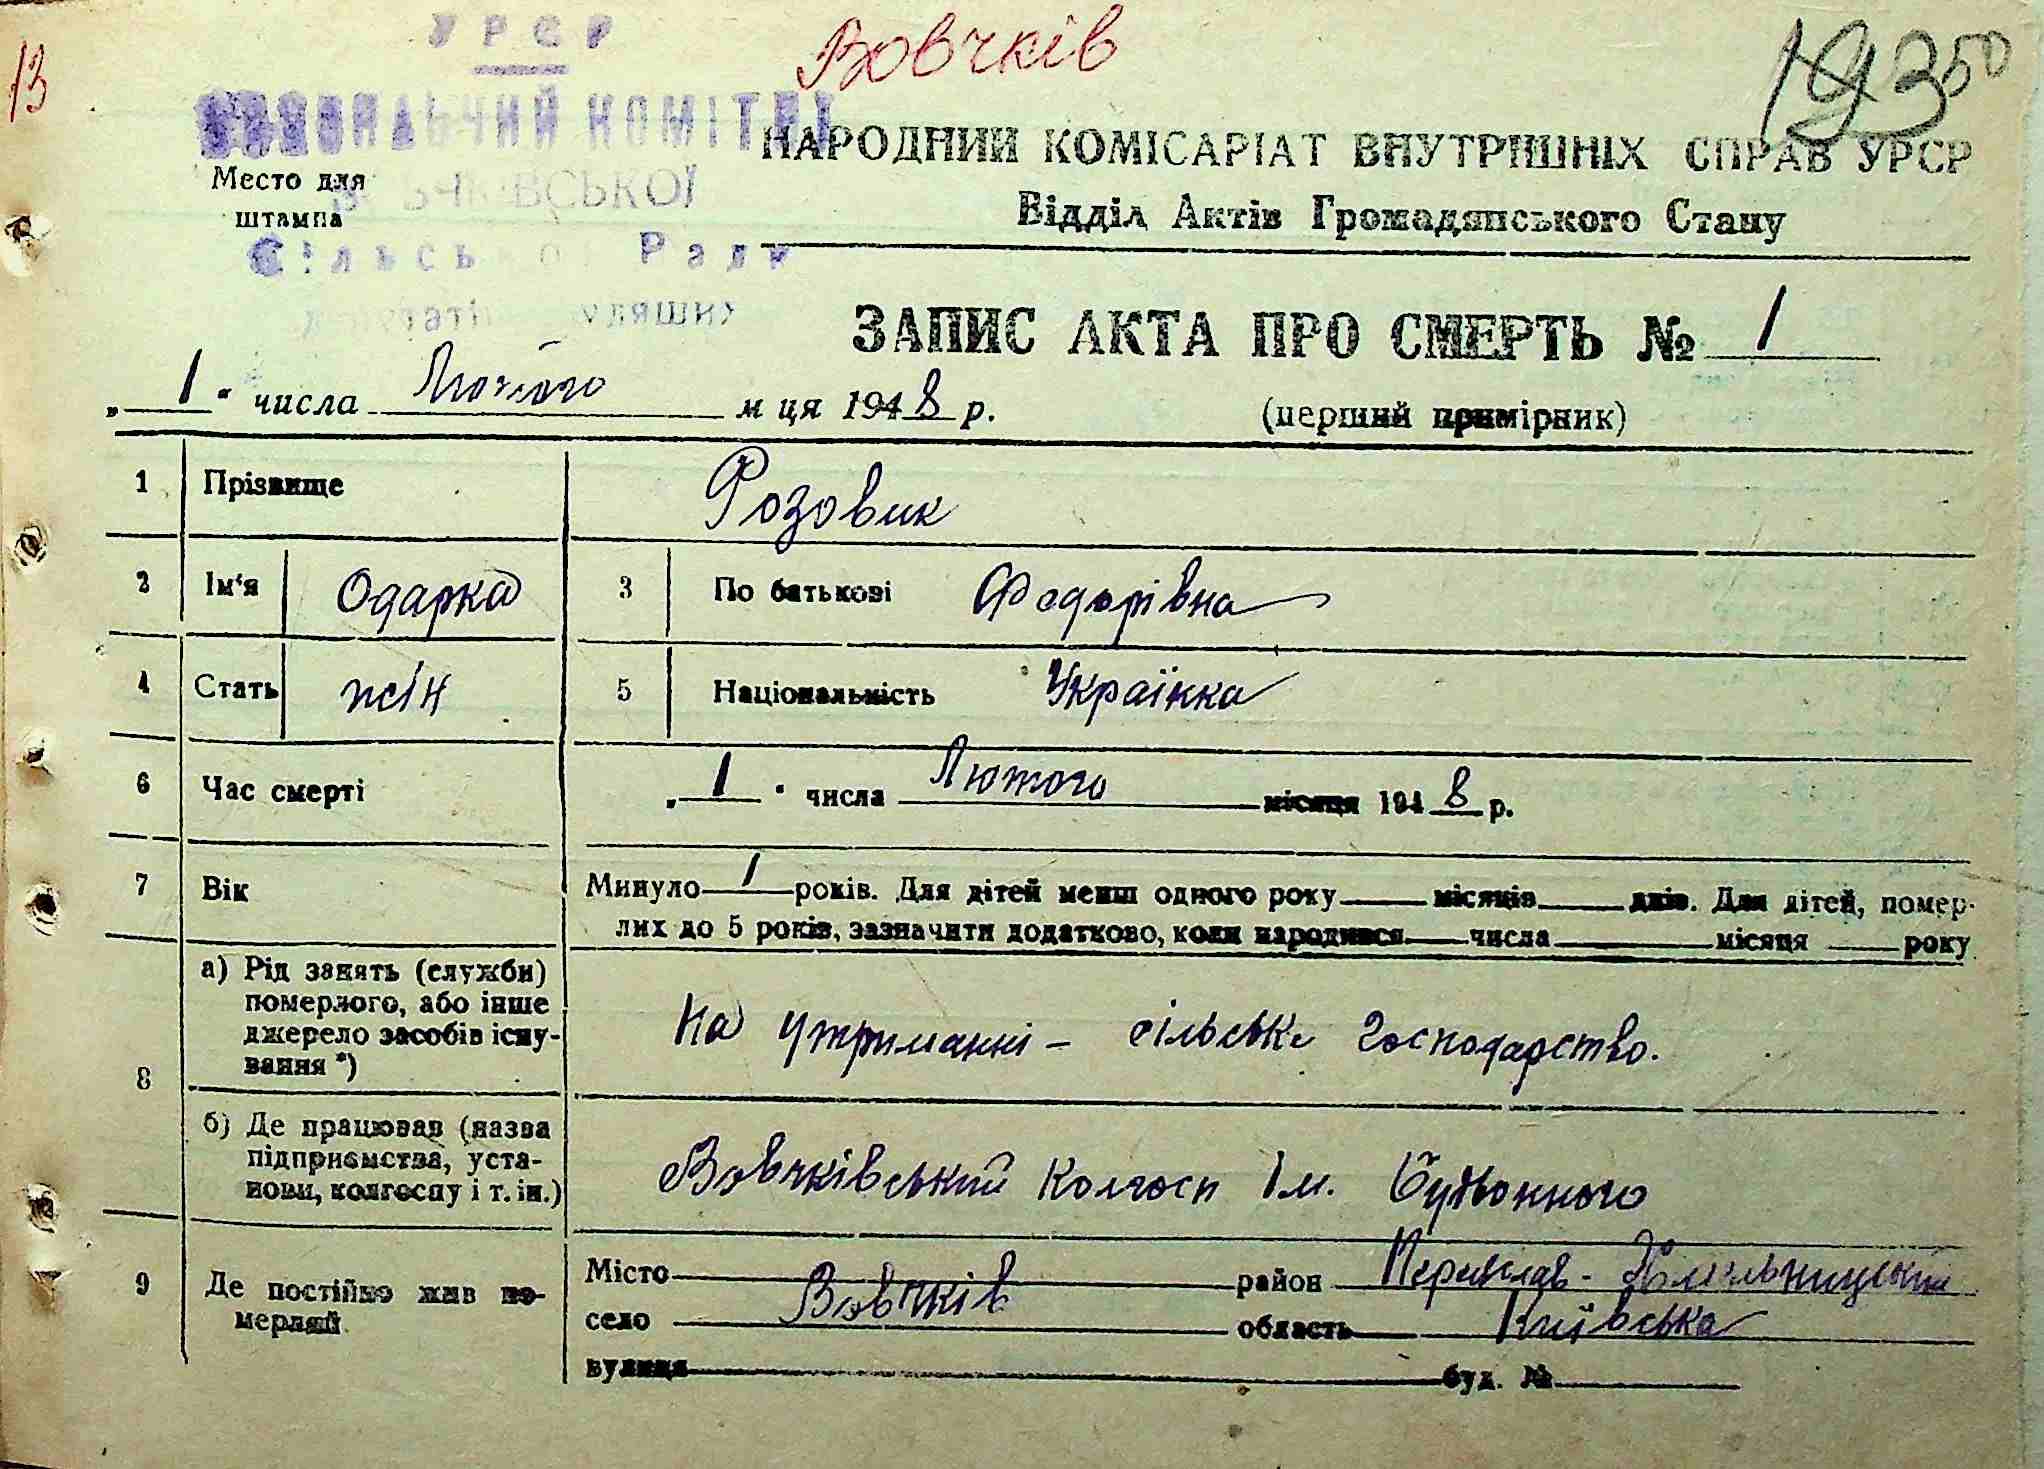 УРСР
Вовчків
13
193
50
ВИКОНАВЧИЙ КОМІТЕТ
НАРОДНИЙ КОМІСАРІАТ ВНУТРІШНІХ СПРАВ УРСР
Место для
штампа
Відділ Актів Громадянського Стану
Сільської Ради
ЗАПИС АКТА ПРО СМЕРТЬ № 1
„ 1 “ числа Лютого м ця 1948 р.
(перший примірник)
1 Прізвище Розовик
2 Ім'я Одарка 3 По батькові Федорівна
4 Стать жін 5 Національність Українка
6 Час смерті „ 1 “ числа Лютого місяця 1948 р.
7 Вік Минуло 1 років. Для дітей менш одного року місяців днів. Для дітей, помер-
лих до 5 років, зазначити додатково, коли народився числа місяця року
8 а) Рід занять (служби)
померлого, або інше
джерело засобів існу-
вання *)
На утриманні – сільське господарство.
б) Де працював (назва
підприємства, уста-
нови, колгоспу і т. ін.)
Вовчківський Колгосп Ім. Будьонного
9 Де постійно жив по-
мерлий
Місто район Переяслав-Хмельницький
село Вовчків область Київська
вулиця буд. №